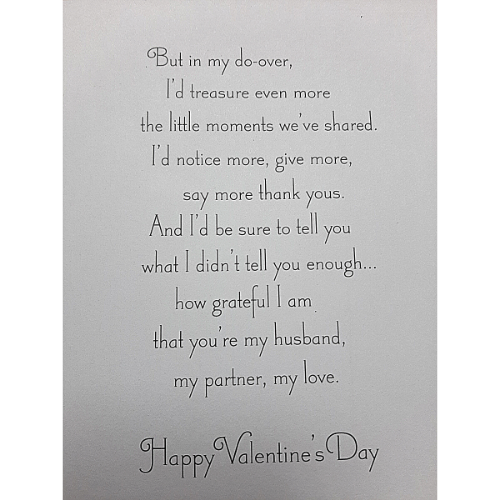 But in my do-over,
I'd treasure even more
the little moments we've shared.
I'd notice more, give more,
say more thank yous.
And I'd be sure to tell you
what I didn't tell you enough...
how grateful I am
that you're my husband,
my partner, my love.
Happy Valentine's Day